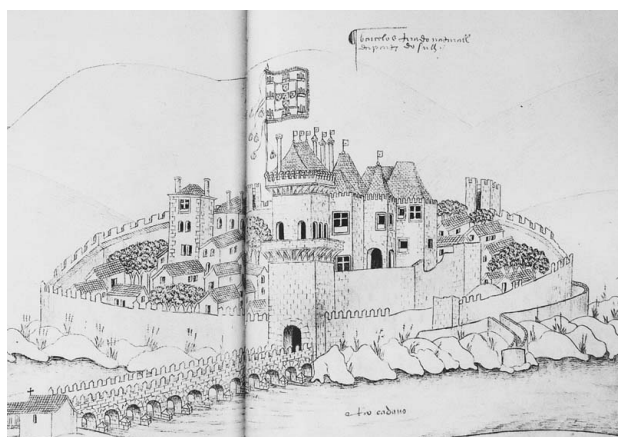 barcelos tirado naturall
da parte do sull
rio cadavo